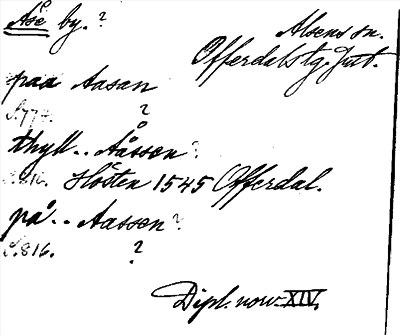 Åse by. ?
Alsens sn.
Offerdals tg. Jmt.
paa Aasan
S. 774. ?
thyll.. Åássen ?
S. 816. Hösten 1545 Offerdal.
på.. Aassen ?
S. 816. ?
Dipl. norv. XIV.